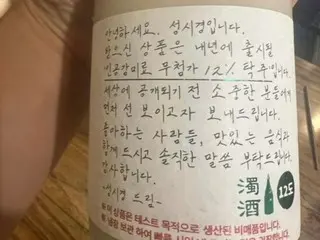 안녕하세요. 성시경입니다.
받으신 상품은 내년에 출시될
인공감미료 무첨가 12% 탁주입니다.
세상에 공개되기 전 소중한 분들에게
먼저 선 보이고자 보내드립니다.
좋아하는 사람들, 맛있는 음식과
함께 드시고 솔직한 말씀 부탁드립니다.
감사합니다.
-성시경 드림-
濁酒
12도
이 상품은 테스트 목적으로 생산된 비매품입니다.
냉장 보관 하여